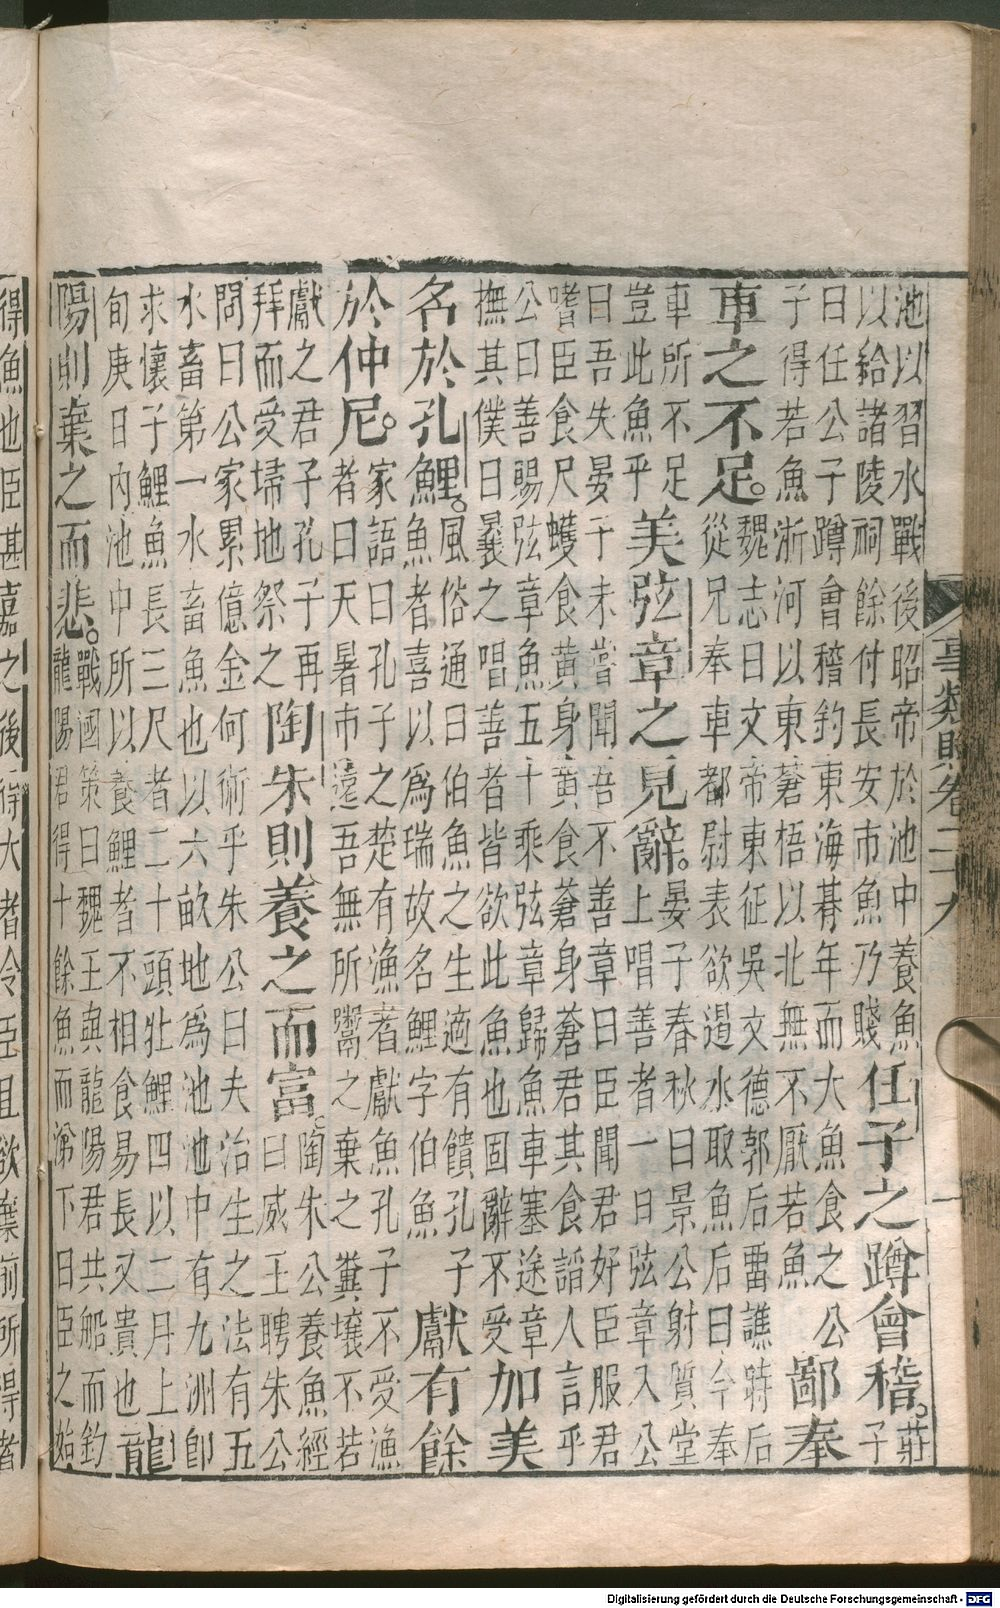 事類賦卷二十九 一
池以習水戰後昭帝於池中養魚
以給諸陵祠餘付長安市魚乃賤
任子之蹲會稽。
莊
子
曰任公子蹲會稽釣東海朞年而大魚食之公
子得若魚浙河以東蒼梧以北無不厭若魚
鄙奉
車之不足。
魏志曰文帝東征吳文德郭后畱譙時后
從兄奉車都尉表欲遏水取魚后曰今奉
車所不足
豈此魚乎
美弦章之見辭。
晏子春秋曰景公射質堂
上唱善者一日弦章入公
曰吾失晏子未嘗聞吾不善章曰臣聞君好臣服君
嗜臣食尺蠖食黃身黃食蒼身蒼君其食諂人言乎
公曰善賜弦章魚五十乘弦章歸魚車塞途章
撫其僕曰曩之唱善者皆欲此魚也固辭不受
加美
名於孔鯉。
風俗通曰伯魚之生適有饋孔子
魚者喜以爲瑞故名鯉字伯魚
獻有餘
於仲尼。
家語曰孔子之楚有漁者獻魚孔子不受漁
者曰天暑市遠吾無所鬻之棄之糞壤不若
獻之君子孔子再
拜而受埽地祭之
陶朱則養之而富。
陶朱公養魚經
曰威王聘朱公
問曰公家累億金何術乎朱公曰夫治生之法有五
水畜第一水畜魚也以六畝地爲池池中有九洲卽
求懷子鯉魚長三尺者二十頭牡鯉四以二月上
旬庚日內池中所以養鯉者不相食易長又貴也
龍
陽則棄之而悲。
戰國策曰魏王與龍陽君共船而釣
龍陽君得十餘魚而涕下曰臣之始
得魚也臣甚嘉之後得大者今臣且欲棄前所得者
Digitalisierung gefördert durch die Deutsche Forschungsgemeinschaft - DFG